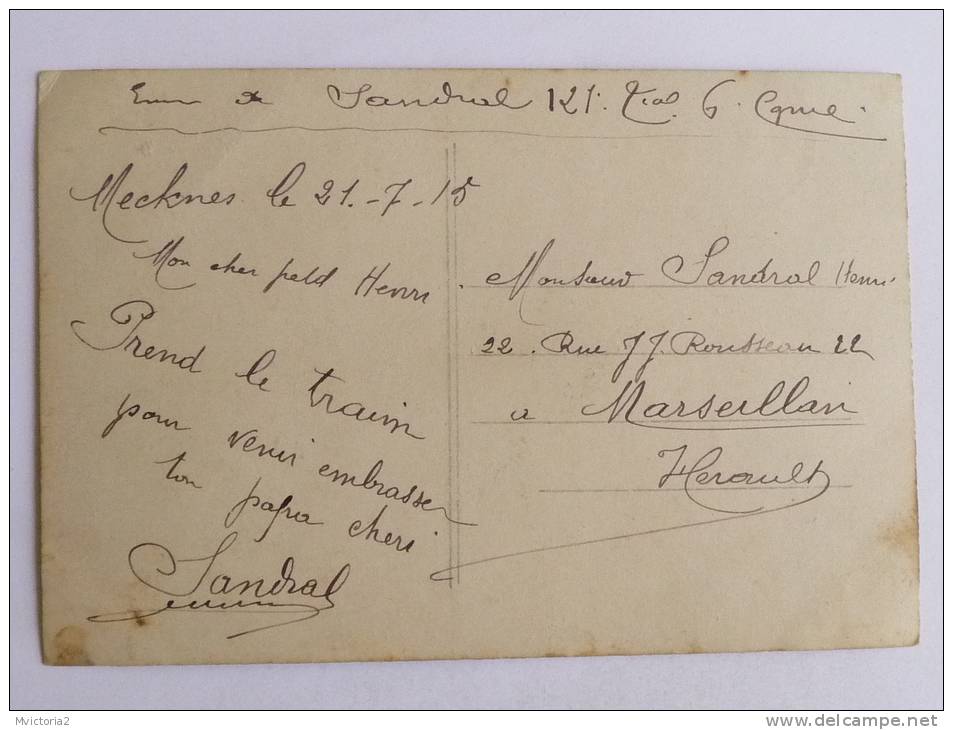 Env de Sandral 121. Tial 6 Cgnie.
Mecknes le 21.-7.-15
Mon cher petit Henri.
Prend le train
pour venir embrasser
ton papa cheri
Sandral
Monsieur Sandral Henri
22. Rue JJ. Rousseau 22
a Marseillan
Herault
Mvictoria2
www.delcampe.net